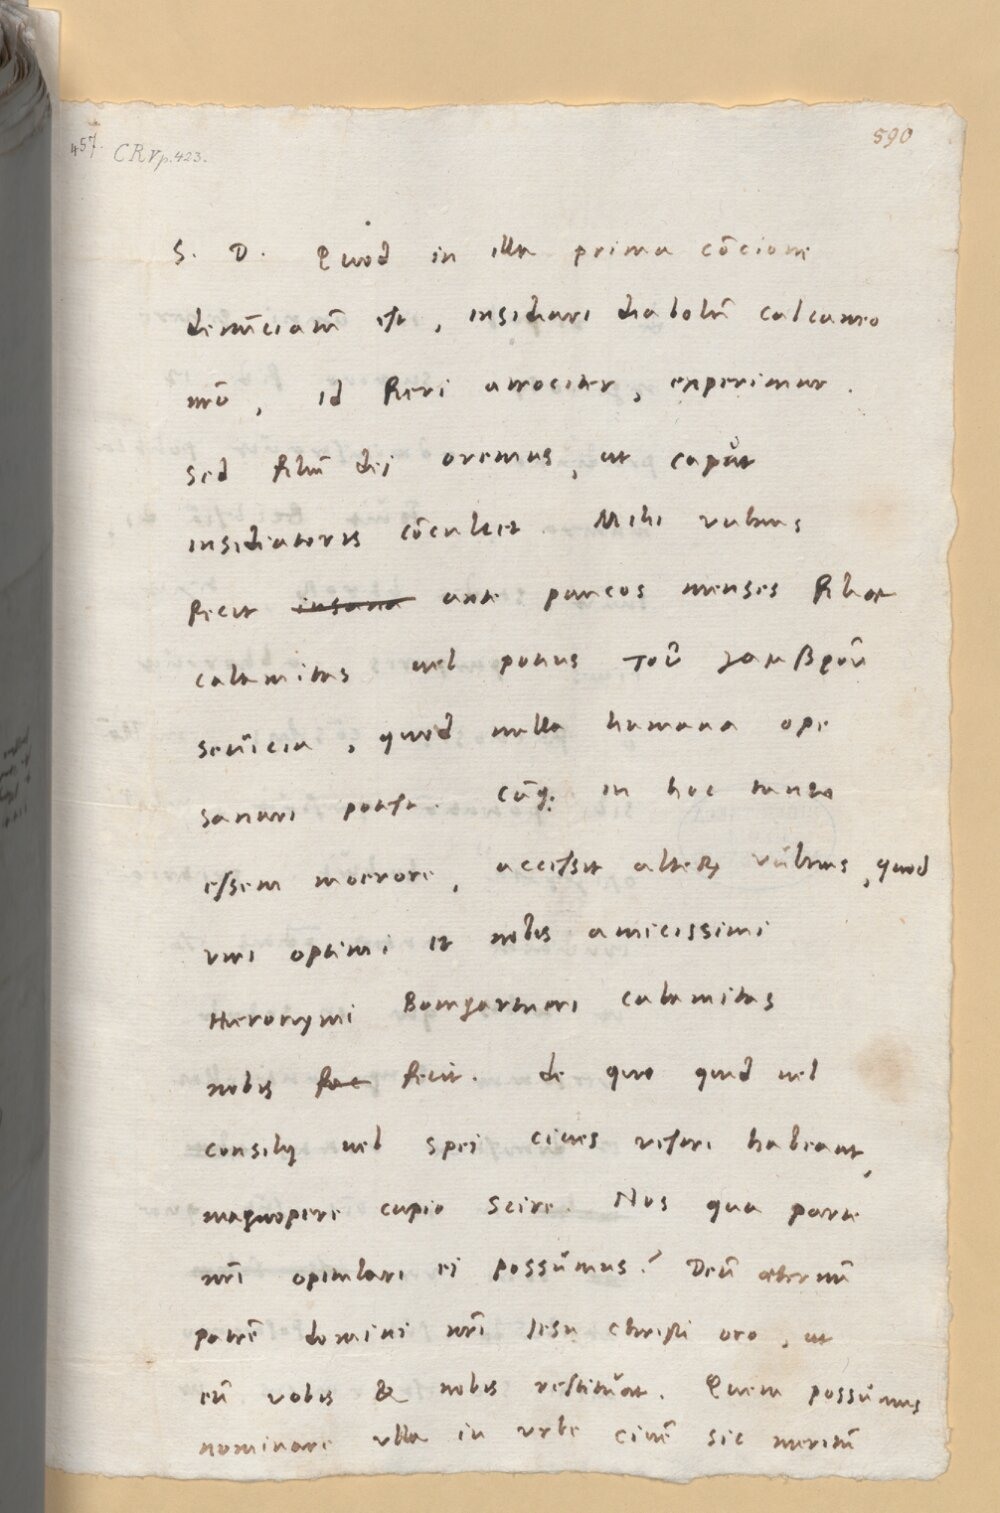 457. CR V p. 423.
590
S. D. Quod in illa prima cōcione
denūciatū est, insidiari diabolū calcaneo
nrō, id fieri atrociter, experimur.
Sed filiū dei oremus, ut capŭt
insidiatoris cōculcet. Mihi vulnus
fecit insana ante paucos menses filiae
calamitas vel potius τοῦ γαμβροῦ
sevicia, quod nulla humana ope
sanari potest. Cūq; in hoc tanto
essem moerore, accessit alterū vŭlnus, quod
viri optimi et nobis amicissimi
Hieronymi Bomgartneri calamitas
nobis fac fecit. de quo quid vel
consilij vel spei cives vestri habeant,
magnopere cupio scire. Nos qua parte
nrī opitulari ei possŭmus? Deū aeternū
patrē domini nrī Iesu Christi oro, ut
eū vobis & nobis restitŭat. Quem possŭmus
nominare ulla in urbe civē sic meritū